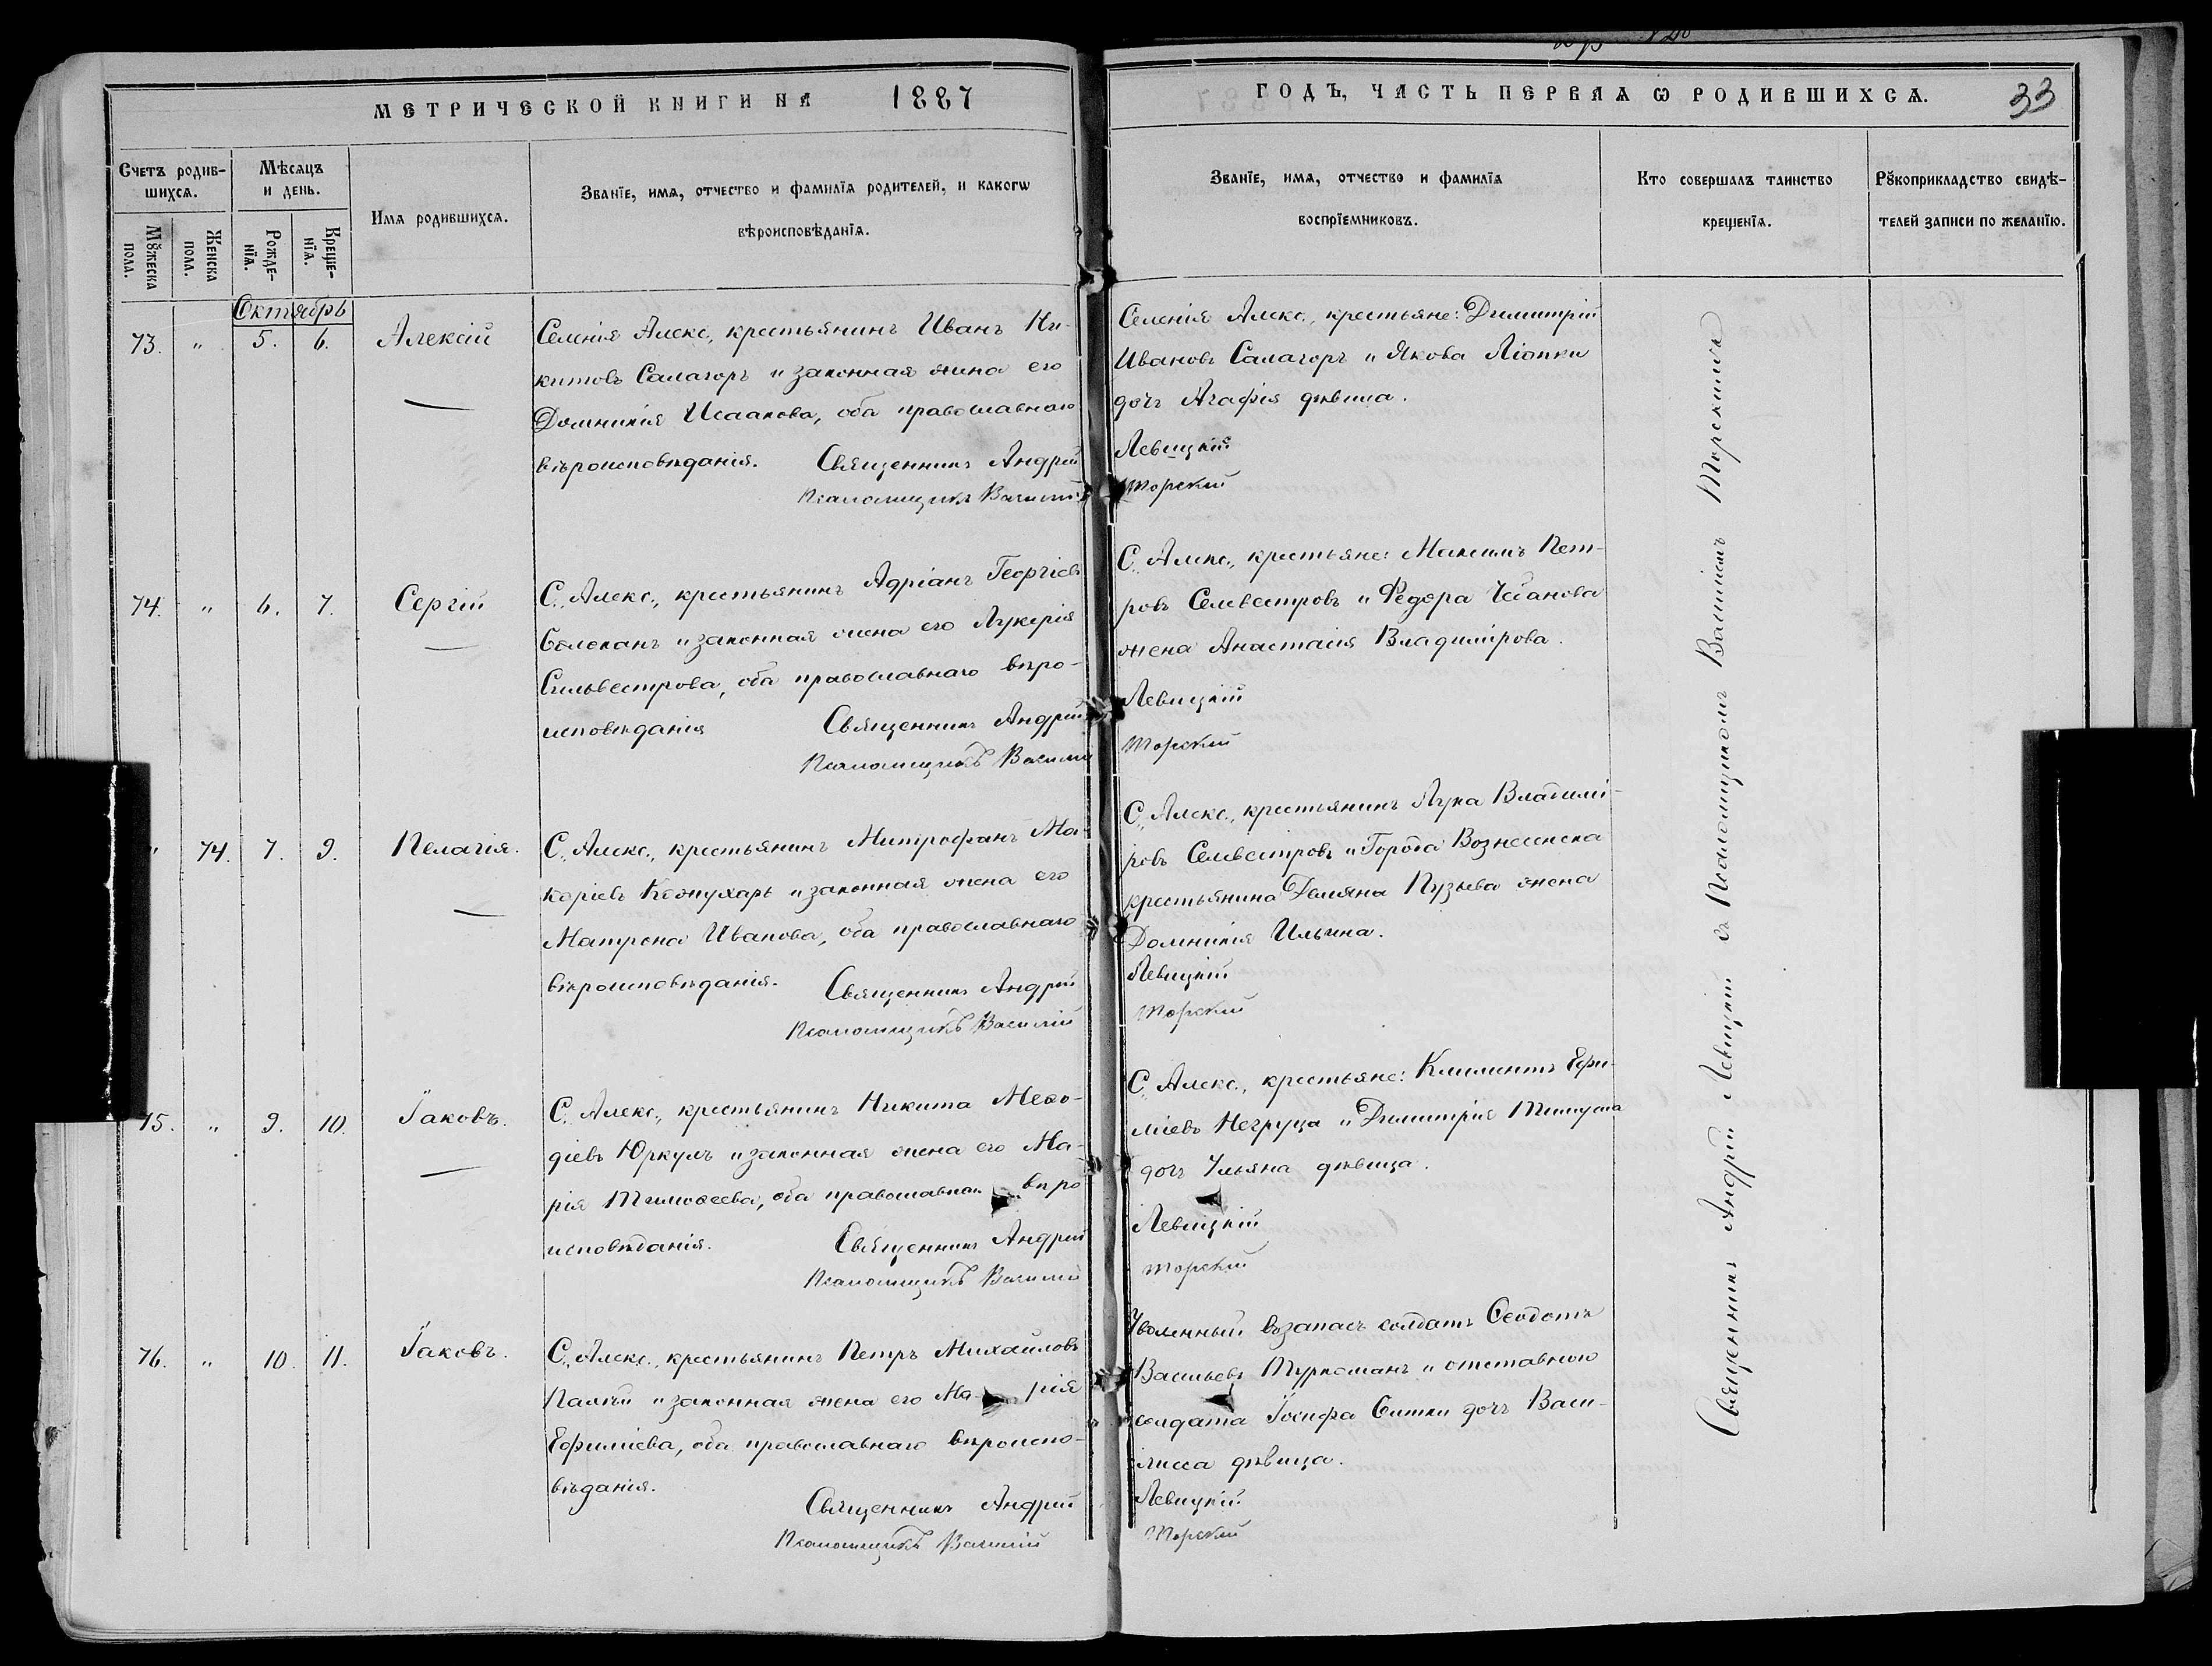 МЕТРИЧЕСКОЙ КНИГИ НА 1887
ГОДЪ, ЧАСТЬ ПЕРВАѦ Ѡ РОДИВШИХСѦ. 33
Счетъ родив-
шихсѧ.
Мѣсѧцъ
и день.
Мꙋжеска
пола.
Женска
пола.
Рожде-
нїѧ.
Креще-
нїѧ.
Имѧ родившихсѧ.
Званїе, имѧ, отчество и фамилїѧ родителей, и какогѡ
вѣроисповѣданїѧ.
Званїе, имѧ, отчество и фамилїѧ
воспрїемниковъ.
Кто совершалъ таинство
крещенїѧ.
Рꙋкоприкладство свидѣ-
телей записи по желанїю.
Октябрь
73. " 5. 6. Алексій
Селенія Алекс., крестьянинъ Иванъ Ни-
китовъ Салагоръ и законная жена его
Домникія Исаакова, оба православнаго
вѣроисповѣданія. Священникъ Андрей
Псаломщикъ Василій
Селенія Алекс., крестьяне: Димитрій
Ивановъ Салагоръ и Якова
дочь Агафія дѣвица.
Левицкій
Торскій
74. " 6. 7. Сергій
С. Алекс., крестьянинъ Адріанъ Георгіевъ
и законная жена его Лукерія
Сильвестрова, оба православнаго вѣро-
исповѣданія Священникъ Андрей
Псаломщикъ Василій
С. Алекс., крестьяне: Максимъ Пет-
ровъ Селевестровъ и Федора Чебанова
жена Анастасія Владимірова.
Левицкій
Торскій
" 74. 7. 9. Пелагія.
С. Алекс., крестьянинъ Митрофанъ Ма-
каріевъ Кожухарь и законная жена его
Матрона Иванова, оба православнаго
вѣроисповѣданія. Священникъ Андрей
Псаломщикъ Василій
С. Алекс., крестьянинъ Лука Владимі-
ровъ Селевестровъ и Города Вознесенска
крестьянина Демяна Пузыева жена
Домникія Ильина.
Левицкій
Торскій
75. " 9. 10. Іаковъ.
С. Алекс., крестьянинъ Никита Меѳо-
діевъ Юркулъ и законная жена его Ма-
рія Тимоѳеева, оба православнаго вѣро
исповѣданія. Священникъ Андрей
Псаломщикъ Василій
С. Алекс., крестьяне: Климентъ Ефи-
міевъ Негруца и Димитрія
дочь Ульяна дѣвица.
Левицкій
Торскій
76. " 10. 11. Іаковъ.
С. Алекс., крестьянинъ Петръ Михайловъ
Палій и законная жена его Ма-рія
Ефиміева, оба православнаго вѣроиспо-
вѣданія.
Священникъ Андрей
Псаломщикъ Василій
Уволенный возапасъ солдатъ Ѳеодотъ
Васильевъ Туркоманъ и отставного
солдата Іосифа дочь Васи-
лисса дѣвица.
Левицкій
Торскій
Священникъ Андрей Левицкій съ Псаломщикомъ Василіемъ Торскимъ